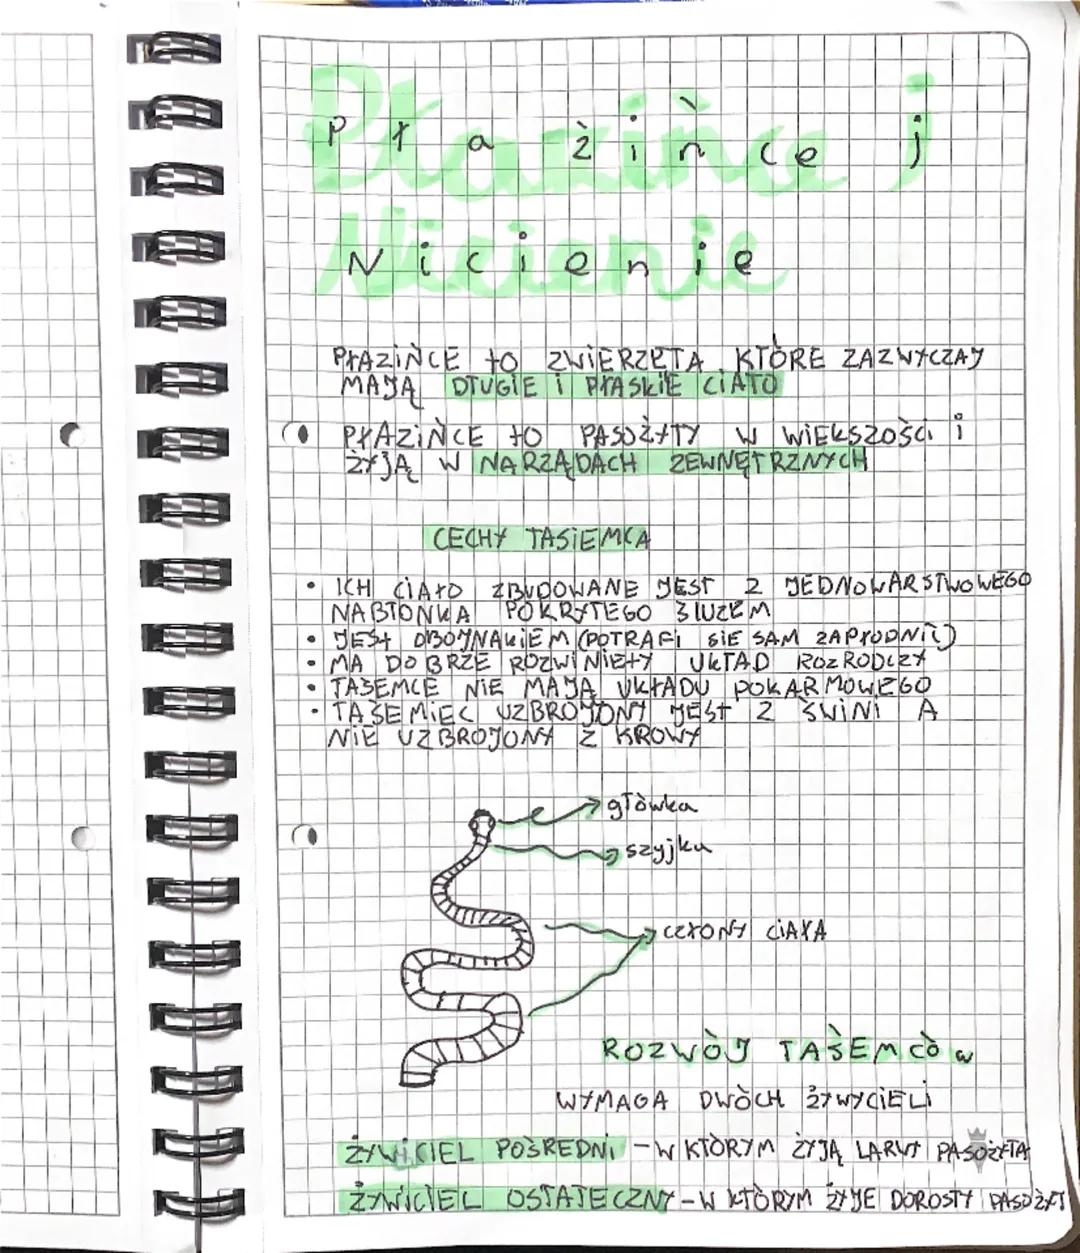 Płazińce i
Nicienie
PŁAZIŃCE TO ZWIERZĘTA KTÓRE ZAZWYCZAJ
MAJĄ DŁUGIE I PŁASKIE CIAŁO
PŁAZIŃCE TO PASOŻYTY W WIEKSZOŚCI i
ŻYJĄ W NARZĄDACH ZEWNĘTRZNYCH
CECHY TASIEMCA
• ICH CIAŁO ZBUDOWANE JEST Z JEDNOWARSTWOWEGO
NABŁONKA POKRYTEGO ŚLUZEM
• JEST OBOJNAKIEM (POTRAFI SIE SAM ZAPŁODNIĆ)
• MA DOBRZE ROZWINIETY UKŁAD ROZRODCZY
• TASEMCE NIE MAJĄ UKŁADU POKARMOWEGO
• TAŚEMIEC UZBROJONY JEST Z ŚWINI A
NIE UZBROJONY Z KROWY
główka
szyjka
CZŁONY CIAŁA
ROZWÓJ TAŚEMCÓW
WYMAGA DWÓCH ŻYWYCIELI
ŻYWICIEL POŚREDNI - W KTÓRYM ŻYJĄ LARWY PASOŻYTA
ŻYWICIEL OSTATECZNY - W KTÓRYM ŻYJE DOROSŁY PASOŻYT